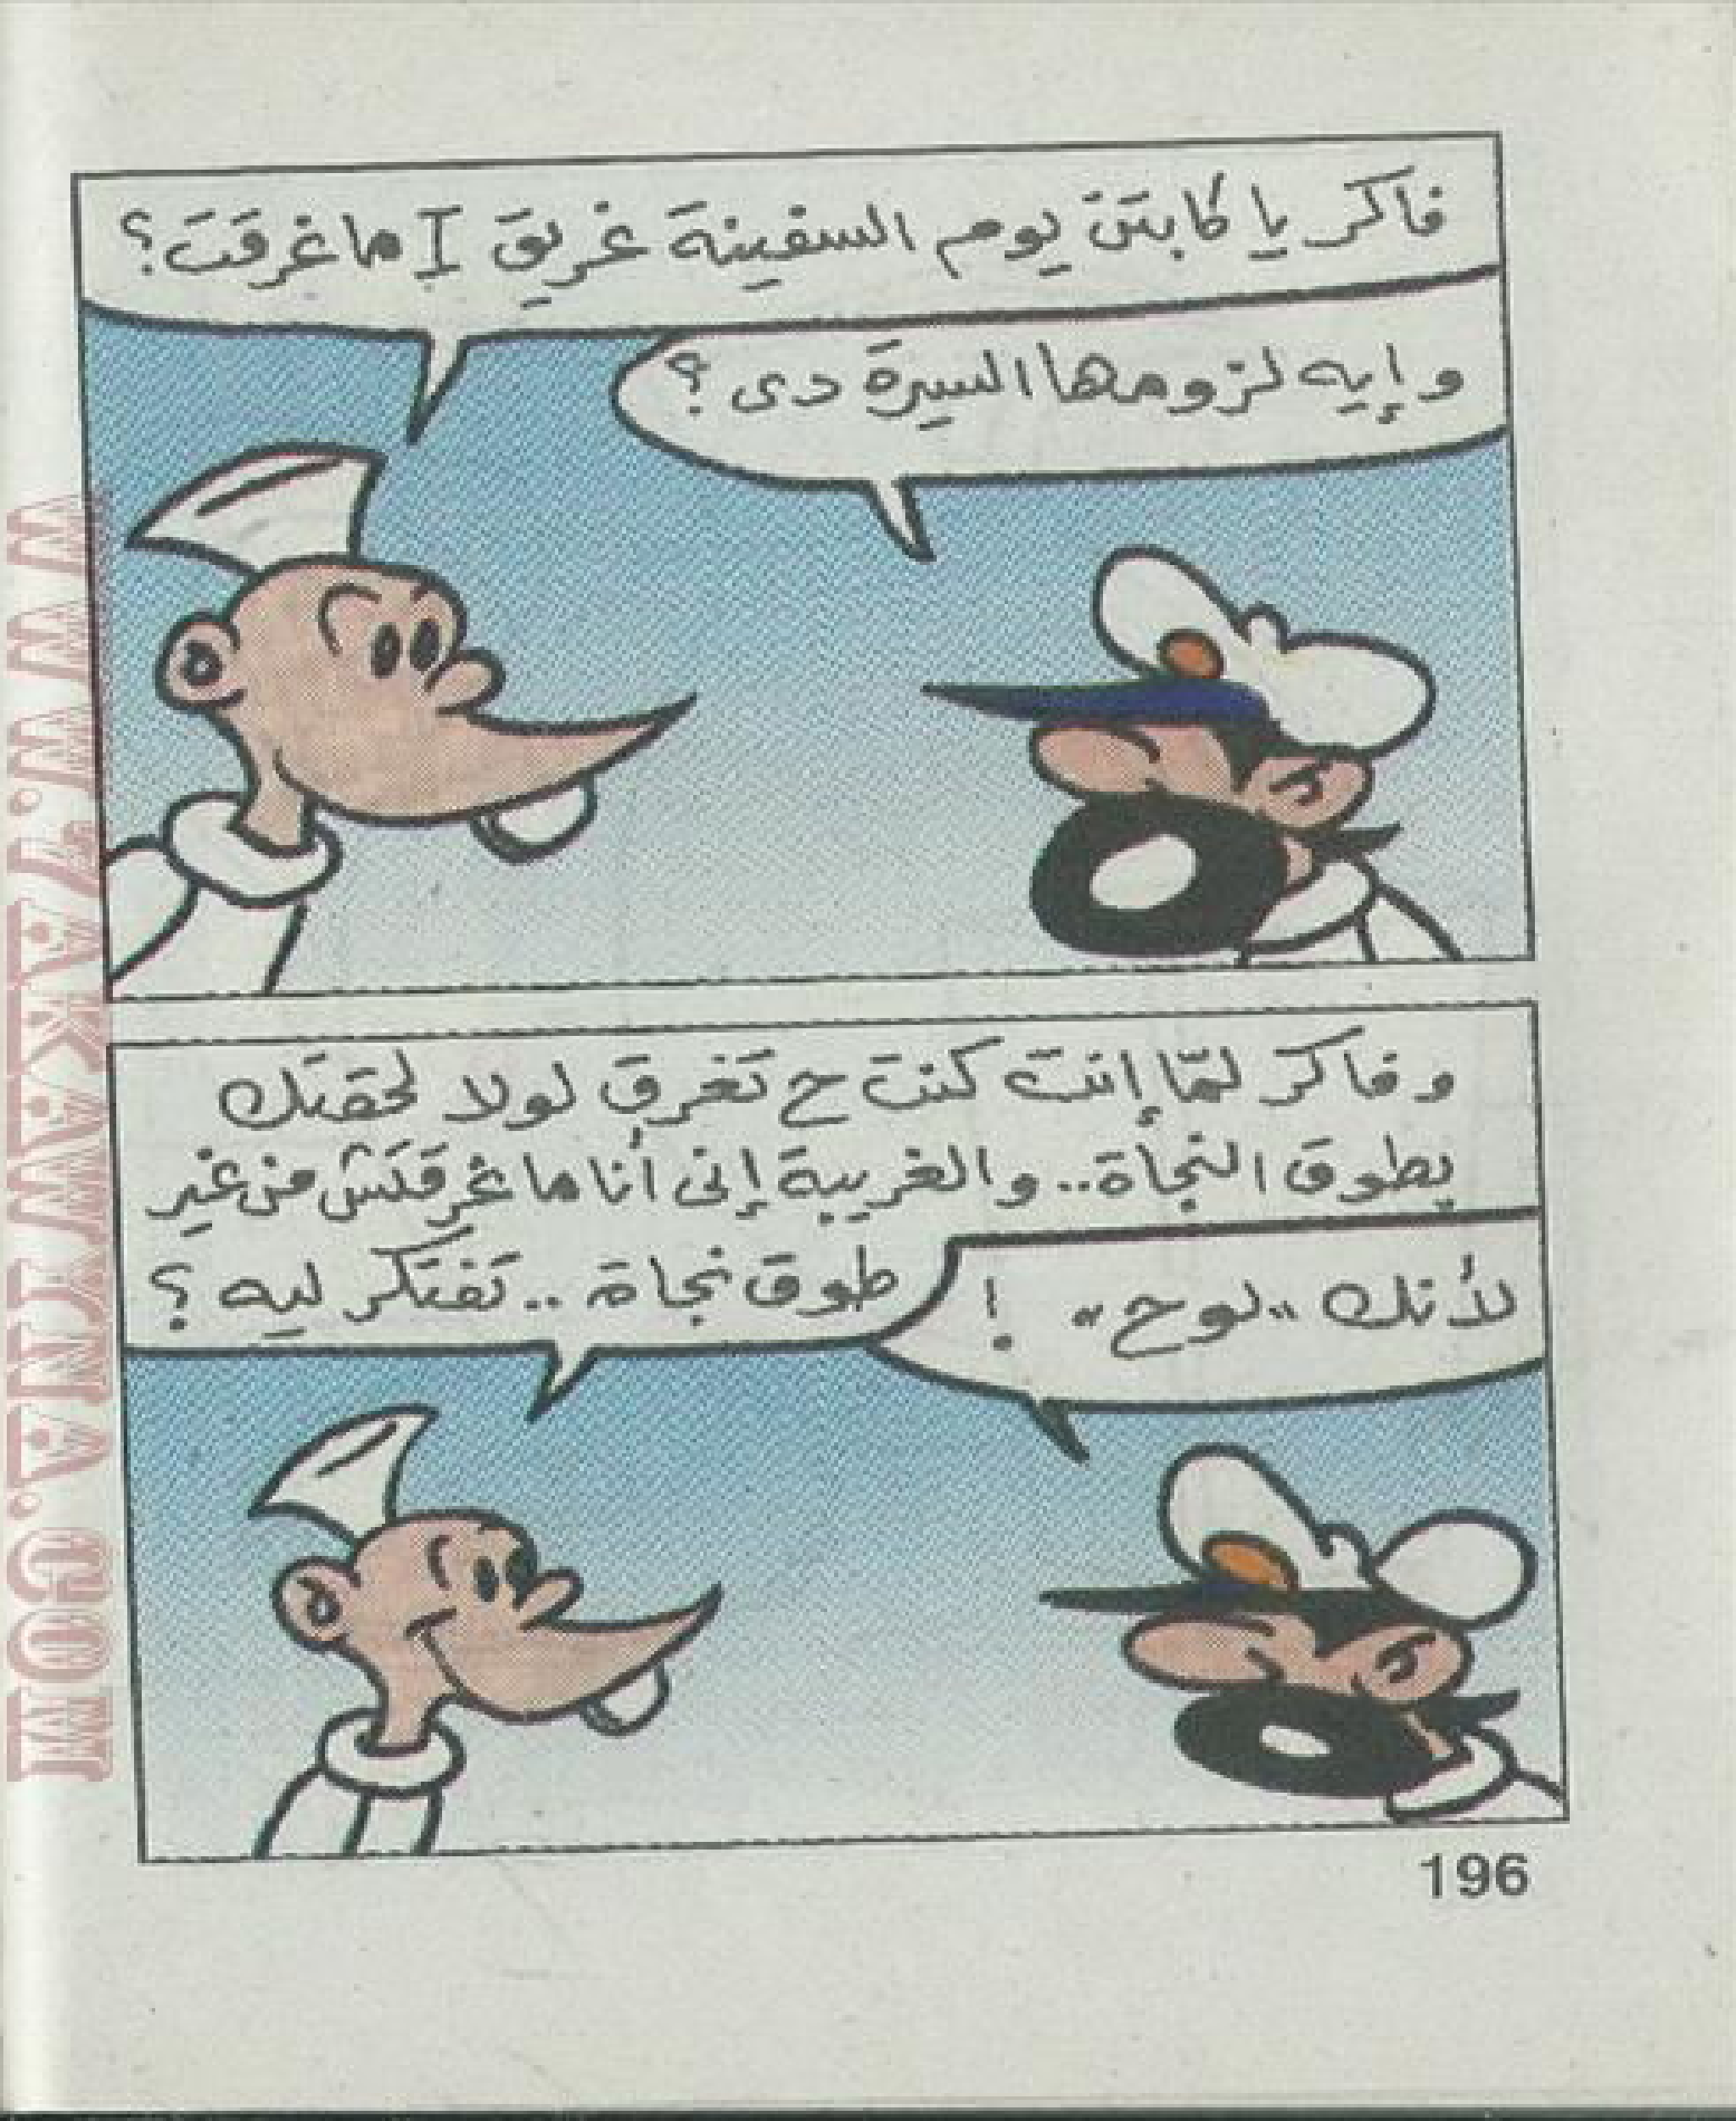 فاكر يا كابتن يوم السفينة غريق I ما غرقت؟
وإيه لزومها السيرة دى؟
وفاكر لمّا إنت كنت ح تغرق لولا لحقتك
بطوق النجاة.. والغريبة إنى أنا ما غرقتش من غير
طوق نجاة.. تفتكر ليه؟
لأنك "لوح" !
196
WWW.7AKAWINA.COM